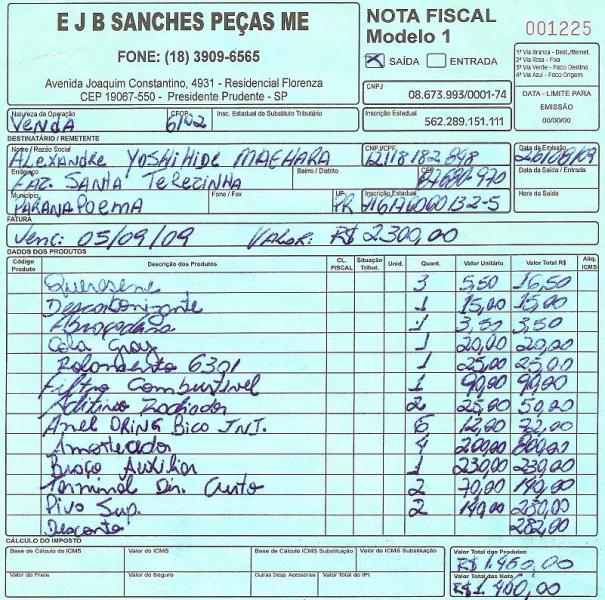 E J B SANCHES PEÇAS ME
FONE: (18) 3909-6565
Avenida Joaquim Constantino, 4931 - Residencial Florenza
CEP 19067-550 - Presidente Prudente - SP
NOTA FISCAL
Modelo 1
001225
X SAÍDA ENTRADA
CNPJ
08.673.993/0001-74
Inscrição Estadual
562.289.151.111
1ª Via Branca - Dest./Remet.
2ª Via Rosa - Fixa
3ª Via Verde - Fisco Destino
4ª Via Azul - Fisco Origem
DATA - LIMITE PARA
EMISSÃO
00/00/00
Natureza da Operação CFOP Insc. Estadual do Substituto Tributário
Venda 6102
DESTINATÁRIO / REMETENTE
Nome / Razão Social CNPJ/CPF Data da Emissão
Alexandre Yoshihide Maehara 12118182 848 26/08/09
Endereço Bairro / Distrito CEP Data da Saída / Entrada
Faz. Santa Terezinha 87680-970
Município Fone / Fax UF Inscrição Estadual Hora da Saída
Paranapoema PR
FATURA
Venc: 05/09/09 Valor: R$ 2.300,00
DADOS DOS PRODUTOS
Código Produto Descrição dos Produtos CL. FISCAL Situação Tribut. Unid. Quant. Valor Unitário Valor Total R$ Alíq. ICMS
Querosene 3 5,50 16,50
Descarbonizante 1 15,00 15,00
Abraçadeira 1 3,50 3,50
Cola Gray 1 20,00 20,00
Rolamento 6301 1 25,00 25,00
Filtro Combustivel 1 90,00 90,00
Aditivo Radiador 2 25,00 50,00
Anel ORING Bico INT. 6 12,00 72,00
Amortecador 4 200,00 800,00
Braço Auxiliar 1 230,00 230,00
Terminal Dir. Curto 2 70,00 140,00
Pivo Sup. 2 140,00 280,00
Desconto 282,00
CÁLCULO DO IMPOSTO
Base de Cálculo do ICMS Valor do ICMS Base de Cálculo ICMS Substituição Valor do ICMS Substituição Valor Total dos Produtos
R$ 1.460,00
Valor do Frete Valor do Seguro Outras Desp. Acessórias Valor Total do IPI Valor Total das Nota
R$ 1.460,00